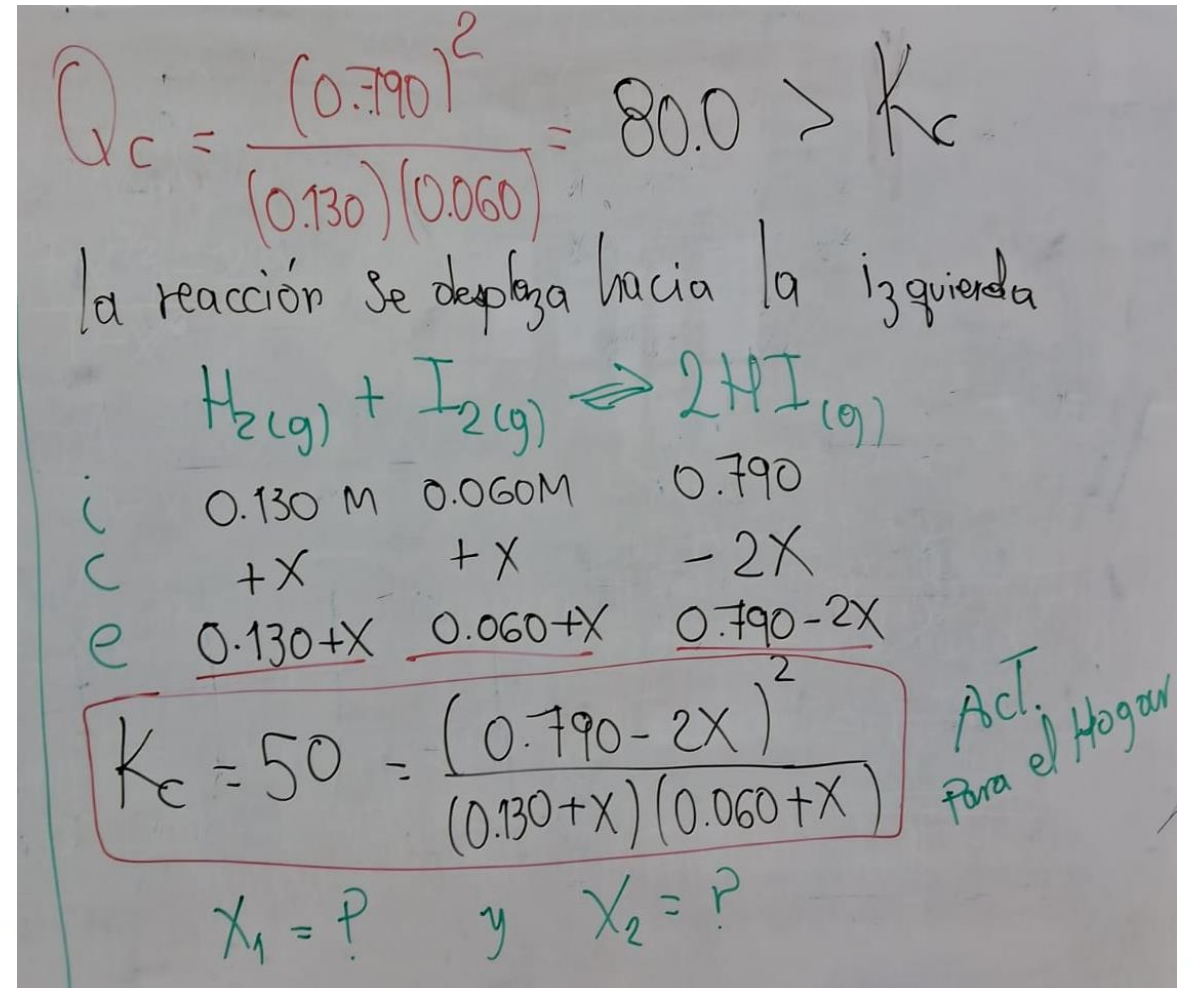 Qc = (0.790)² / (0.130)(0.060) = 80.0 > Kc
la reacción se desplaza hacia la izquierda
H₂(g) + I₂(g) ⇌ 2HI(g)
i 0.130 M 0.060M 0.790
c +X +X -2X
e 0.130+X 0.060+X 0.790-2X
Kc = 50 = (0.790-2X)² / (0.130+X)(0.060+X)
Act.
Para el Hogar
X₁ = ? y X₂ = ?